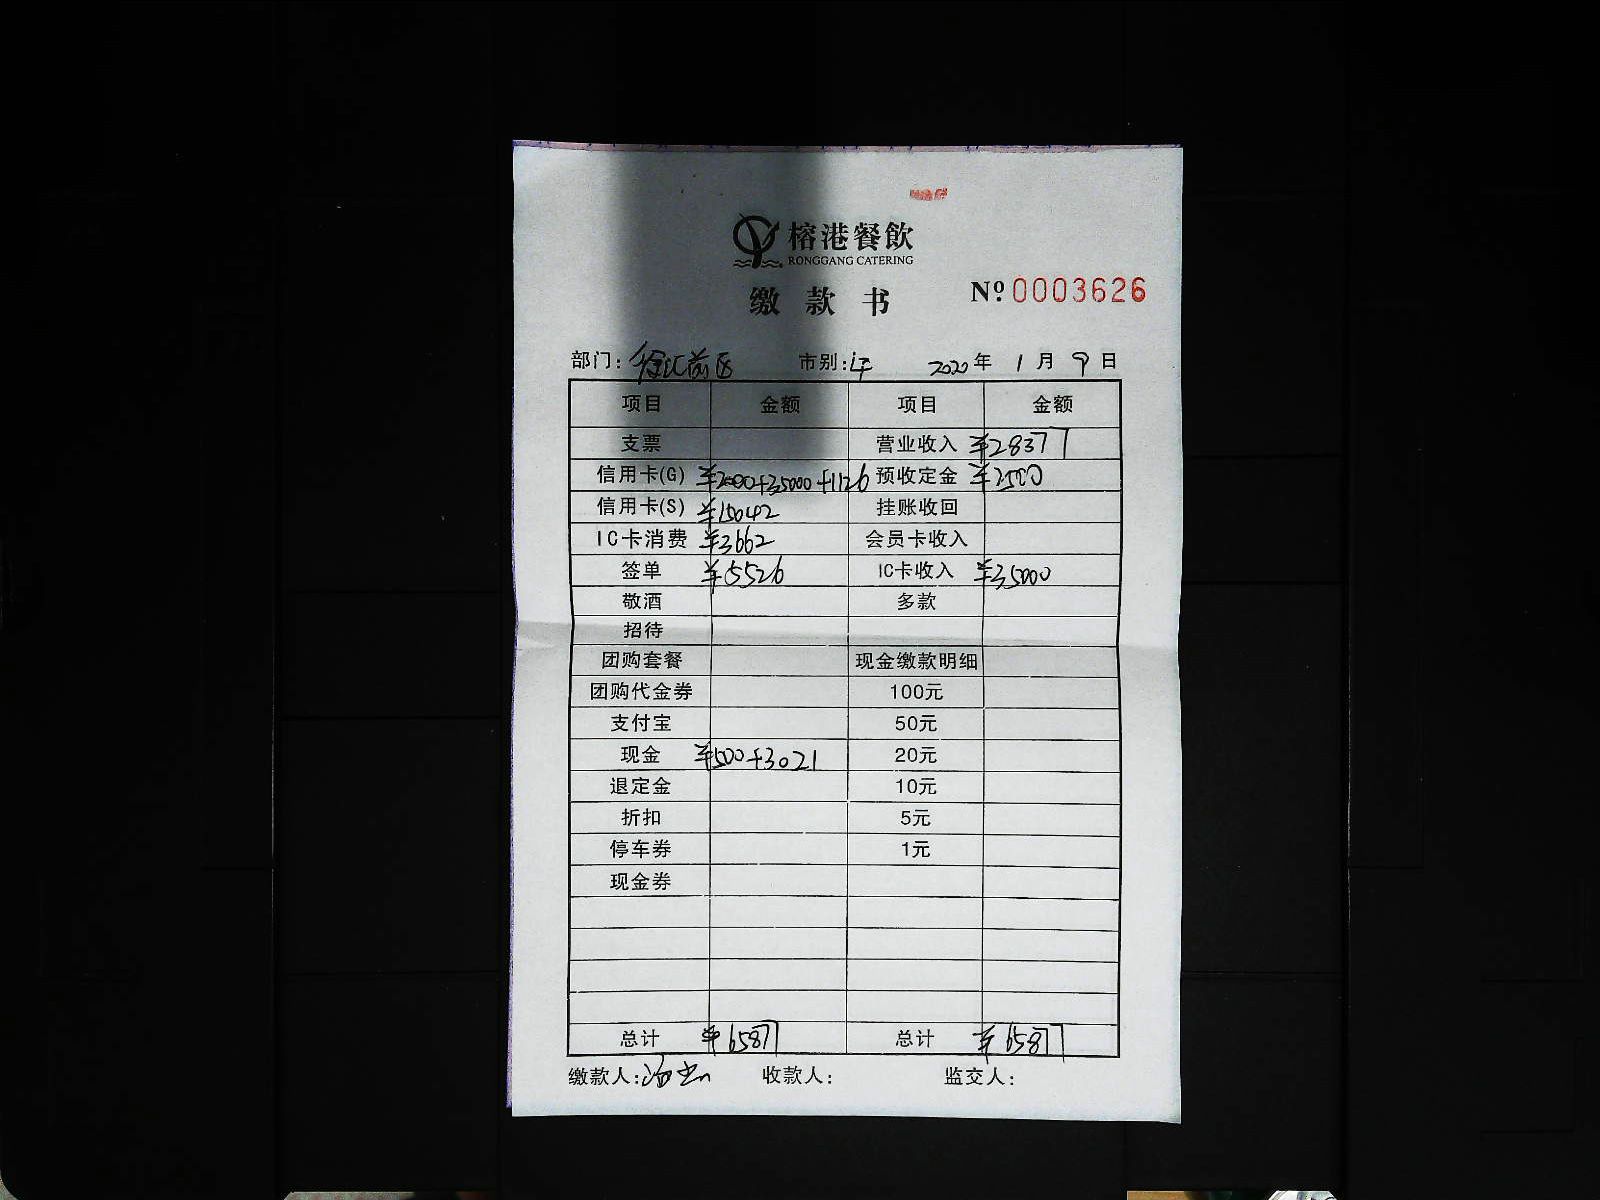 榕港餐飲
RONGGANG CATERING
缴款书
Nº 0003626
部门：徐汇前区 市别： 2020年 1月 9日
项目 金额 项目 金额
支票 营业收入 ¥28377
信用卡(G) ¥2000+35000+1126 预收定金 ¥2500
信用卡(S) ¥15042 挂账收回
IC卡消费 ¥3662 会员卡收入
签单 ¥5526 IC卡收入 ¥35000
敬酒 多款
招待
团购套餐 现金缴款明细
团购代金券 100元
支付宝 50元
现金 ¥500+3021 20元
退定金 10元
折扣 5元
停车券 1元
现金券
总计 ¥65877 总计 ¥65877
缴款人： 收款人： 监交人：